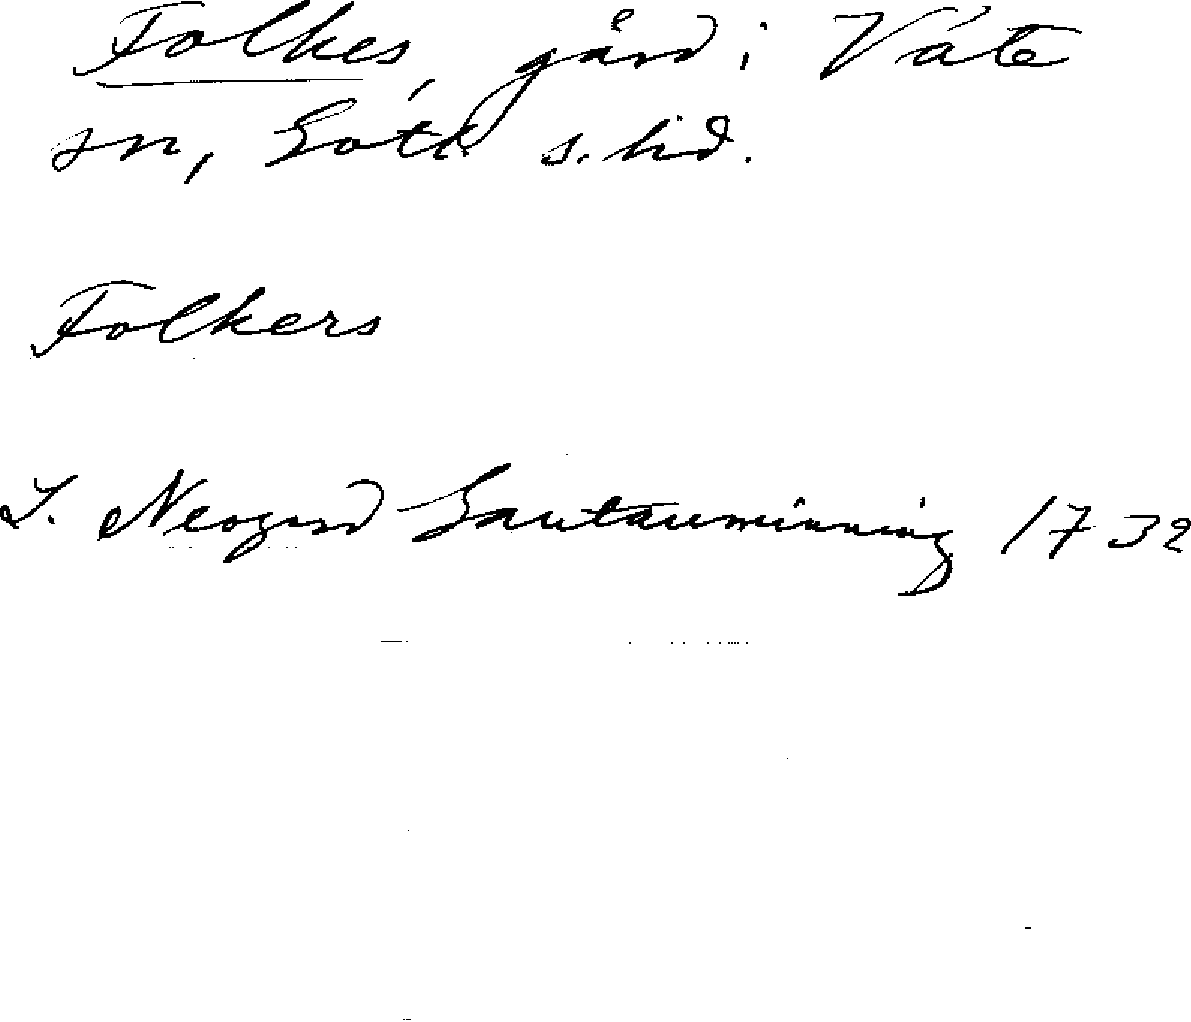 Folkes, gård i Väte
sn, Gotl. s. hd.
Folkers
L. Neogard Gautauminning 1732